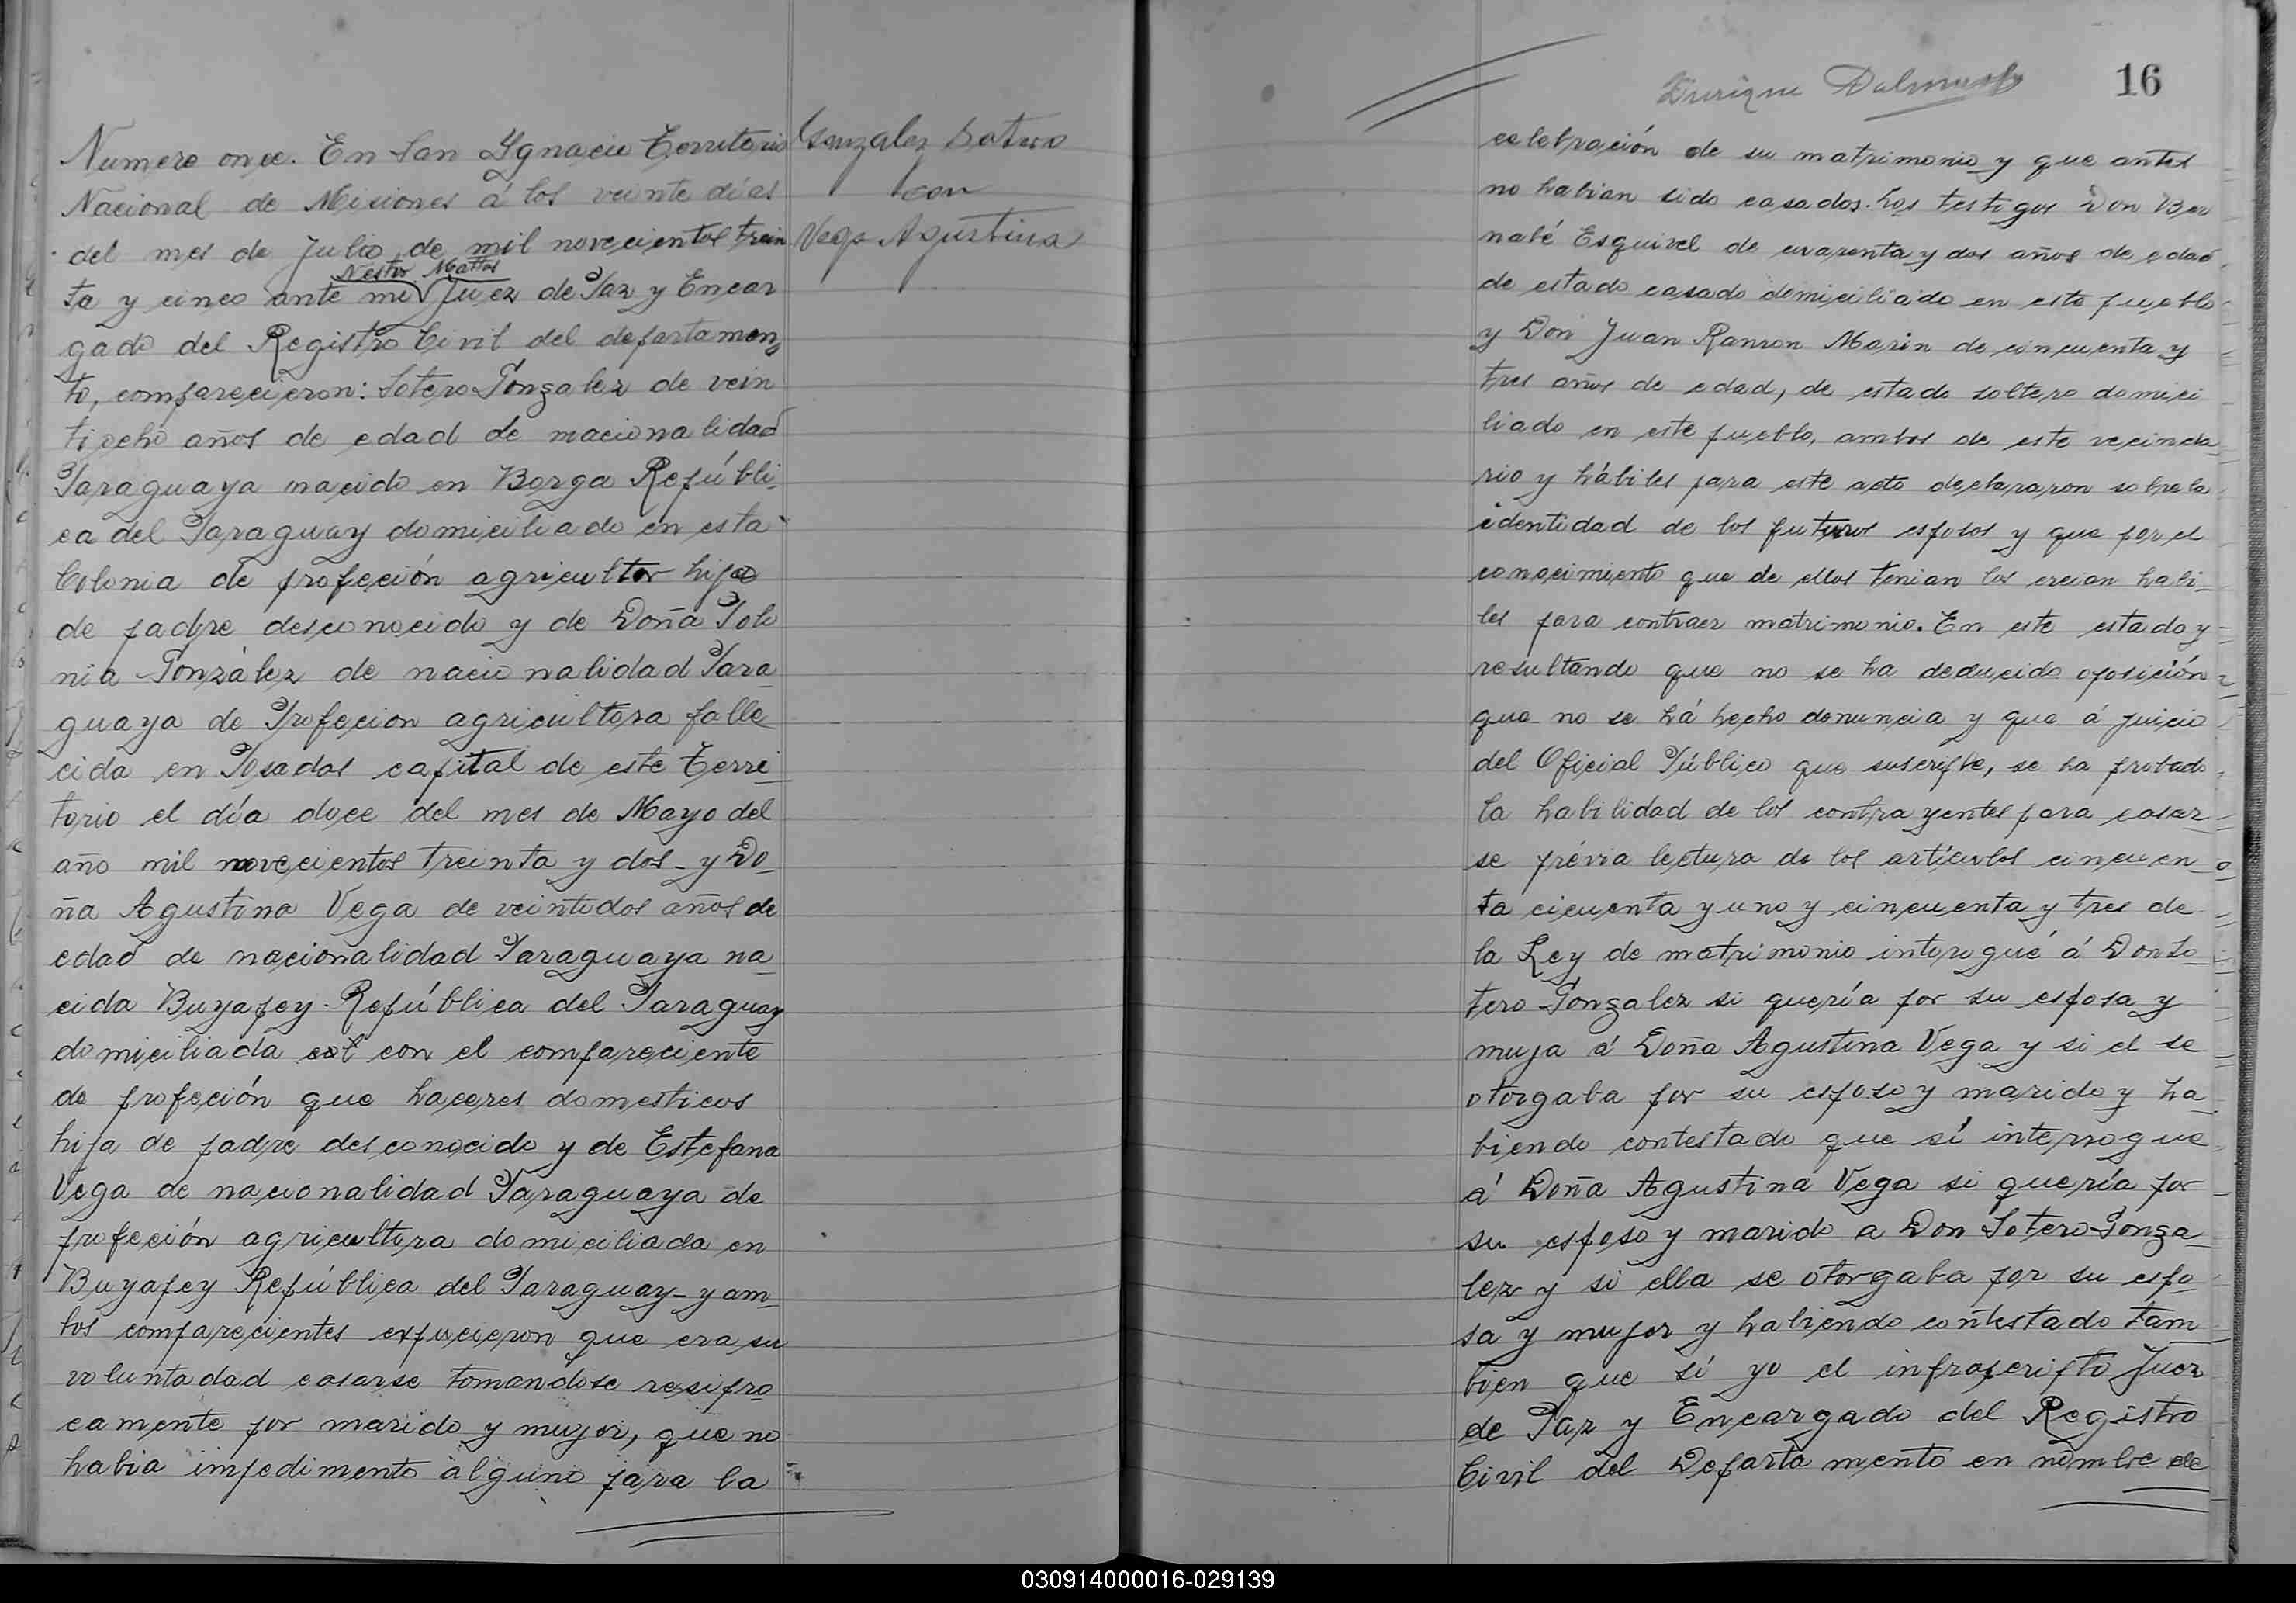 Numero once. En San Ygnacio Territorio
Nacional de Misiones á los veinte días
del mes de Julio de mil novecientos trein
Nestor Mattos
ta y cinco ante mi Juez de Paz y Encar
gado del Registro Civil del departamen
to, comparecieron: Sotero Gonzalez de vein
tiocho años de edad de nacionalidad
Paraguaya nacido en Borga Repúbli
ca del Paraguay domiciliado en esta
Colonia de profeción agricultor hijo
de padre desconocido y de Doña Polo
nia González de nacionalidad Para
guaya de Profecion agricultora falle
cida en Posadas capital de este Terri
torio el día doce del mes de Mayo del
año mil novecientos treinta y dos - y Do
ña Agustina Vega de veintidos años de
edad de nacionalidad Paraguaya na
cida Buyapey República del Paraguay
domiciliada con el compareciente
de profeción que haceres domesticos
hija de padre desconocido y de Estefana
Vega de nacionalidad Paraguaya de
profeción agricultora domiciliada en
Buyapey República del Paraguay - y am
bos comparecientes expucieron que era su
voluntadad casarse tomandose resipro
camente por marido y mujer, que no
habia impedimento alguno para la
Gonzalez Sotero
con
Vega Agustina
Enrique
16
celebración de su matrimonio y que antes
no habian sido casados. Los testigos Don Ber
nabé Esquivel de cuarenta y dos años de edad
de estado casado domiciliado en este pueblo
y Don Juan Ramon Marin de cincuenta y
tres años de edad, de estado soltero domici
liado en este pueblo, ambos de este vecinda
rio y hábiles para este acto declararon sobre la
identidad de los futuros esposos y que por el
conocimiento que de ellos tenian los creian habi
les para contraer matrimonio. En este estado y
resultando que no se ha deducido oposición
que no se há hecho denuncia y que á juicio
del Oficial Público que suscribe, se ha probado
la habilidad de los contrayentes para casar
se prévia lectura de los artículos cincuen
ta cicuenta y uno y cincuenta y tres de
la Ley de matrimonio interogué á Don So
tero Gonzalez si quería por su esposa y
muja á Doña Agustina Vega y si él se
otorgaba por su esposo y marido y ha
biendo contestado que sí interrogue
á Doña Agustina Vega si quería por
su esposo y marido a Don Sotero Gonza
lez y si ella se otorgaba por su espo
sa y mujer y habiendo contestado tam
bien que sí yo el infrascripto Juez
de Paz y Encargado del Registro
Civil del Departamento en nombre de
030914000016-029139